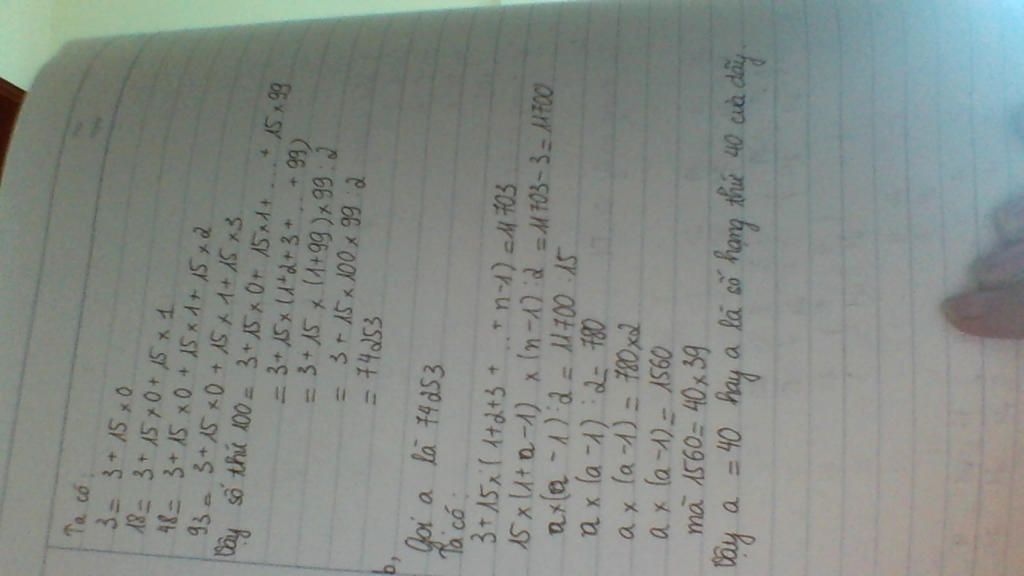 Ta có:
3 = 3 + 15 x 0
18 = 3 + 15 x 0 + 15 x 1
48 = 3 + 15 x 0 + 15 x 1 + 15 x 2
93 = 3 + 15 x 0 + 15 x 1 + 15 x 3
Vậy số thứ 100 = 3 + 15 x 0 + 15 x 1 + ..... + 15 x 99
= 3 + 15 x (1+2+3+ ..... + 99)
= 3 + 15 x (1+99) x 99 : 2
= 3 + 15 x 100 x 99 : 2
= 74253
b,
Gọi a là 74253
Ta có:
3 + 15 x (1+2+3+ ... + n-1) = 11703
15 x (1+a-1) x (n-1) : 2 = 11703 - 3 = 11700
a x (a-1) : 2 = 11700 : 15
a x (a-1) : 2 = 780
a x (a-1) = 780 x 2
a x (a-1) = 1560
mà 1560 = 40 x 39
Vậy a = 40 hay a là số hạng thứ 40 của dãy.